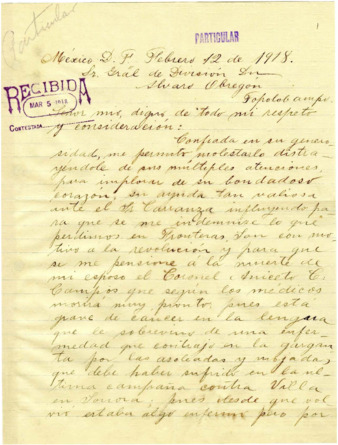 Particular
PARTICULAR
México, D. F. Febrero 12 de 1918.
Sr. Gral de Division Dn
Alvaro Obregon
Topolobampo.
RECIBIDA
MAR 5 1918
CONTESTADA
Señor mio, digno de todo mi respeto
y consideración:
Confiada en su genero
sidad, me permito molestarlo distra
yendole de sus múltiples atenciones,
para implorar de su bondadoso
corazon, su ayuda tan valiosa
ante el Sr. Carranza influyendo pa
ra que se me indemnise lo que
perdimos en Fronteras, Son con mo
tivo a la revolución y para que
se me pensione a la muerte de
mi esposo el Coronel Aniceto C.
Campos que según los médicos
morirá muy pronto, pues está
grave de cancer en la lengua
que le sobrevino de una enfer
medad que contrajo en la gargan
ta por las asoleadas y mojadas,
que debe haber sufrido en la ul
tima campaña contra Villa
en Sonora; pues desde que vol
vió estaba algo enfermo pero por